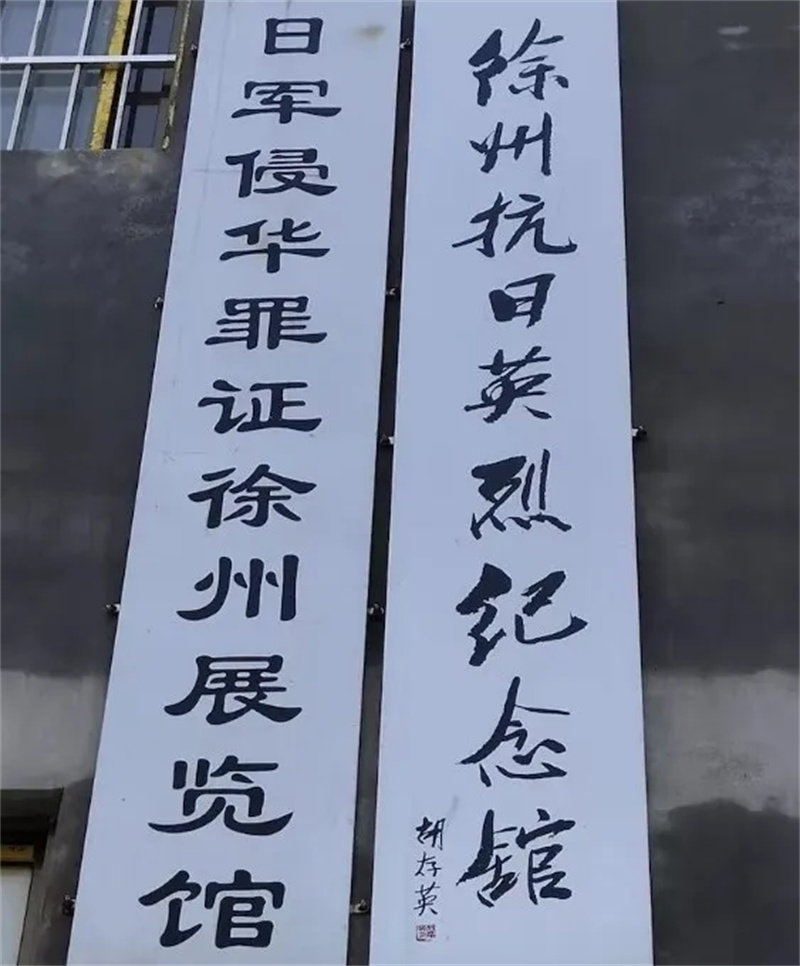 徐州抗日英烈纪念舘
胡存英
日军侵华罪证徐州展览馆